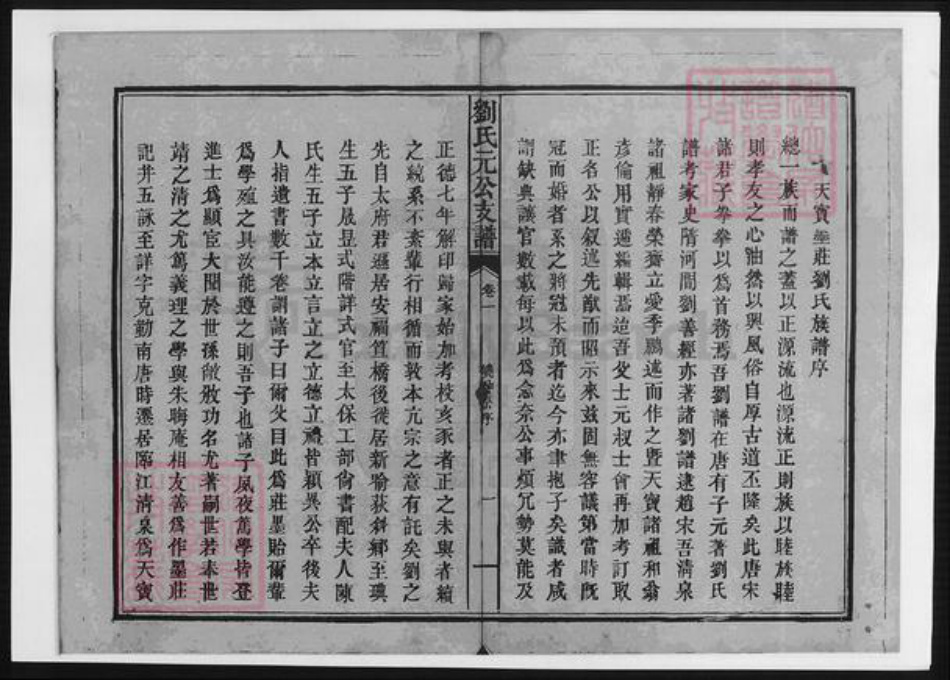 天寶墨莊劉氏族譜序
總一族而譜之蓋以正源流也源流正則族以睦族睦
則孝友之心油然以興風俗自厚古道丕隆矣此唐宋
諸君子拳拳以為首務焉吾劉譜在唐有子元著劉氏
譜考家史隋河間劉善經亦著諸劉譜逮趙宋吾清泉
諸祖靜春榮齋立愛季鵬述而作之暨天寶諸祖和翁
彥倫用實遁編輯焉迨吾父士元叔士會再加考訂取
正名公以叙述先猷而昭示來茲固無容議第當時既
冠而婚者系之將冠未預者迄今亦聿抱子矣識者咸
謂缺典讓官數載每以此為念奈公事頻冗勢莫能及
劉氏元公支譜
卷一
序
一
正德七年解印歸家始加考校亥豕者正之未與者續
之統系不紊輩行相循而敦本亢宗之意有託矣劉之
先自太府君遜居安福笪橋後徙居新喻荻斜鄉至琠
生五子晟昱式階詳式官至太保工部尚書配夫人陳
氏生五子立本立言立之立德立禮皆穎異公卒後夫
人指遺書數千卷謂諸子曰爾父目此為莊墨貽爾輩
為學殖之具汝能遵之則吾子也諸子夙夜篤學皆登
進士為顯宦大聞於世孫敞攽功名尤著嗣世若奉世
靖之清之尤篤義理之學與朱晦庵相友善為作墨莊
記并五詠至詳字克勤南唐時遷居臨江清泉為天寶